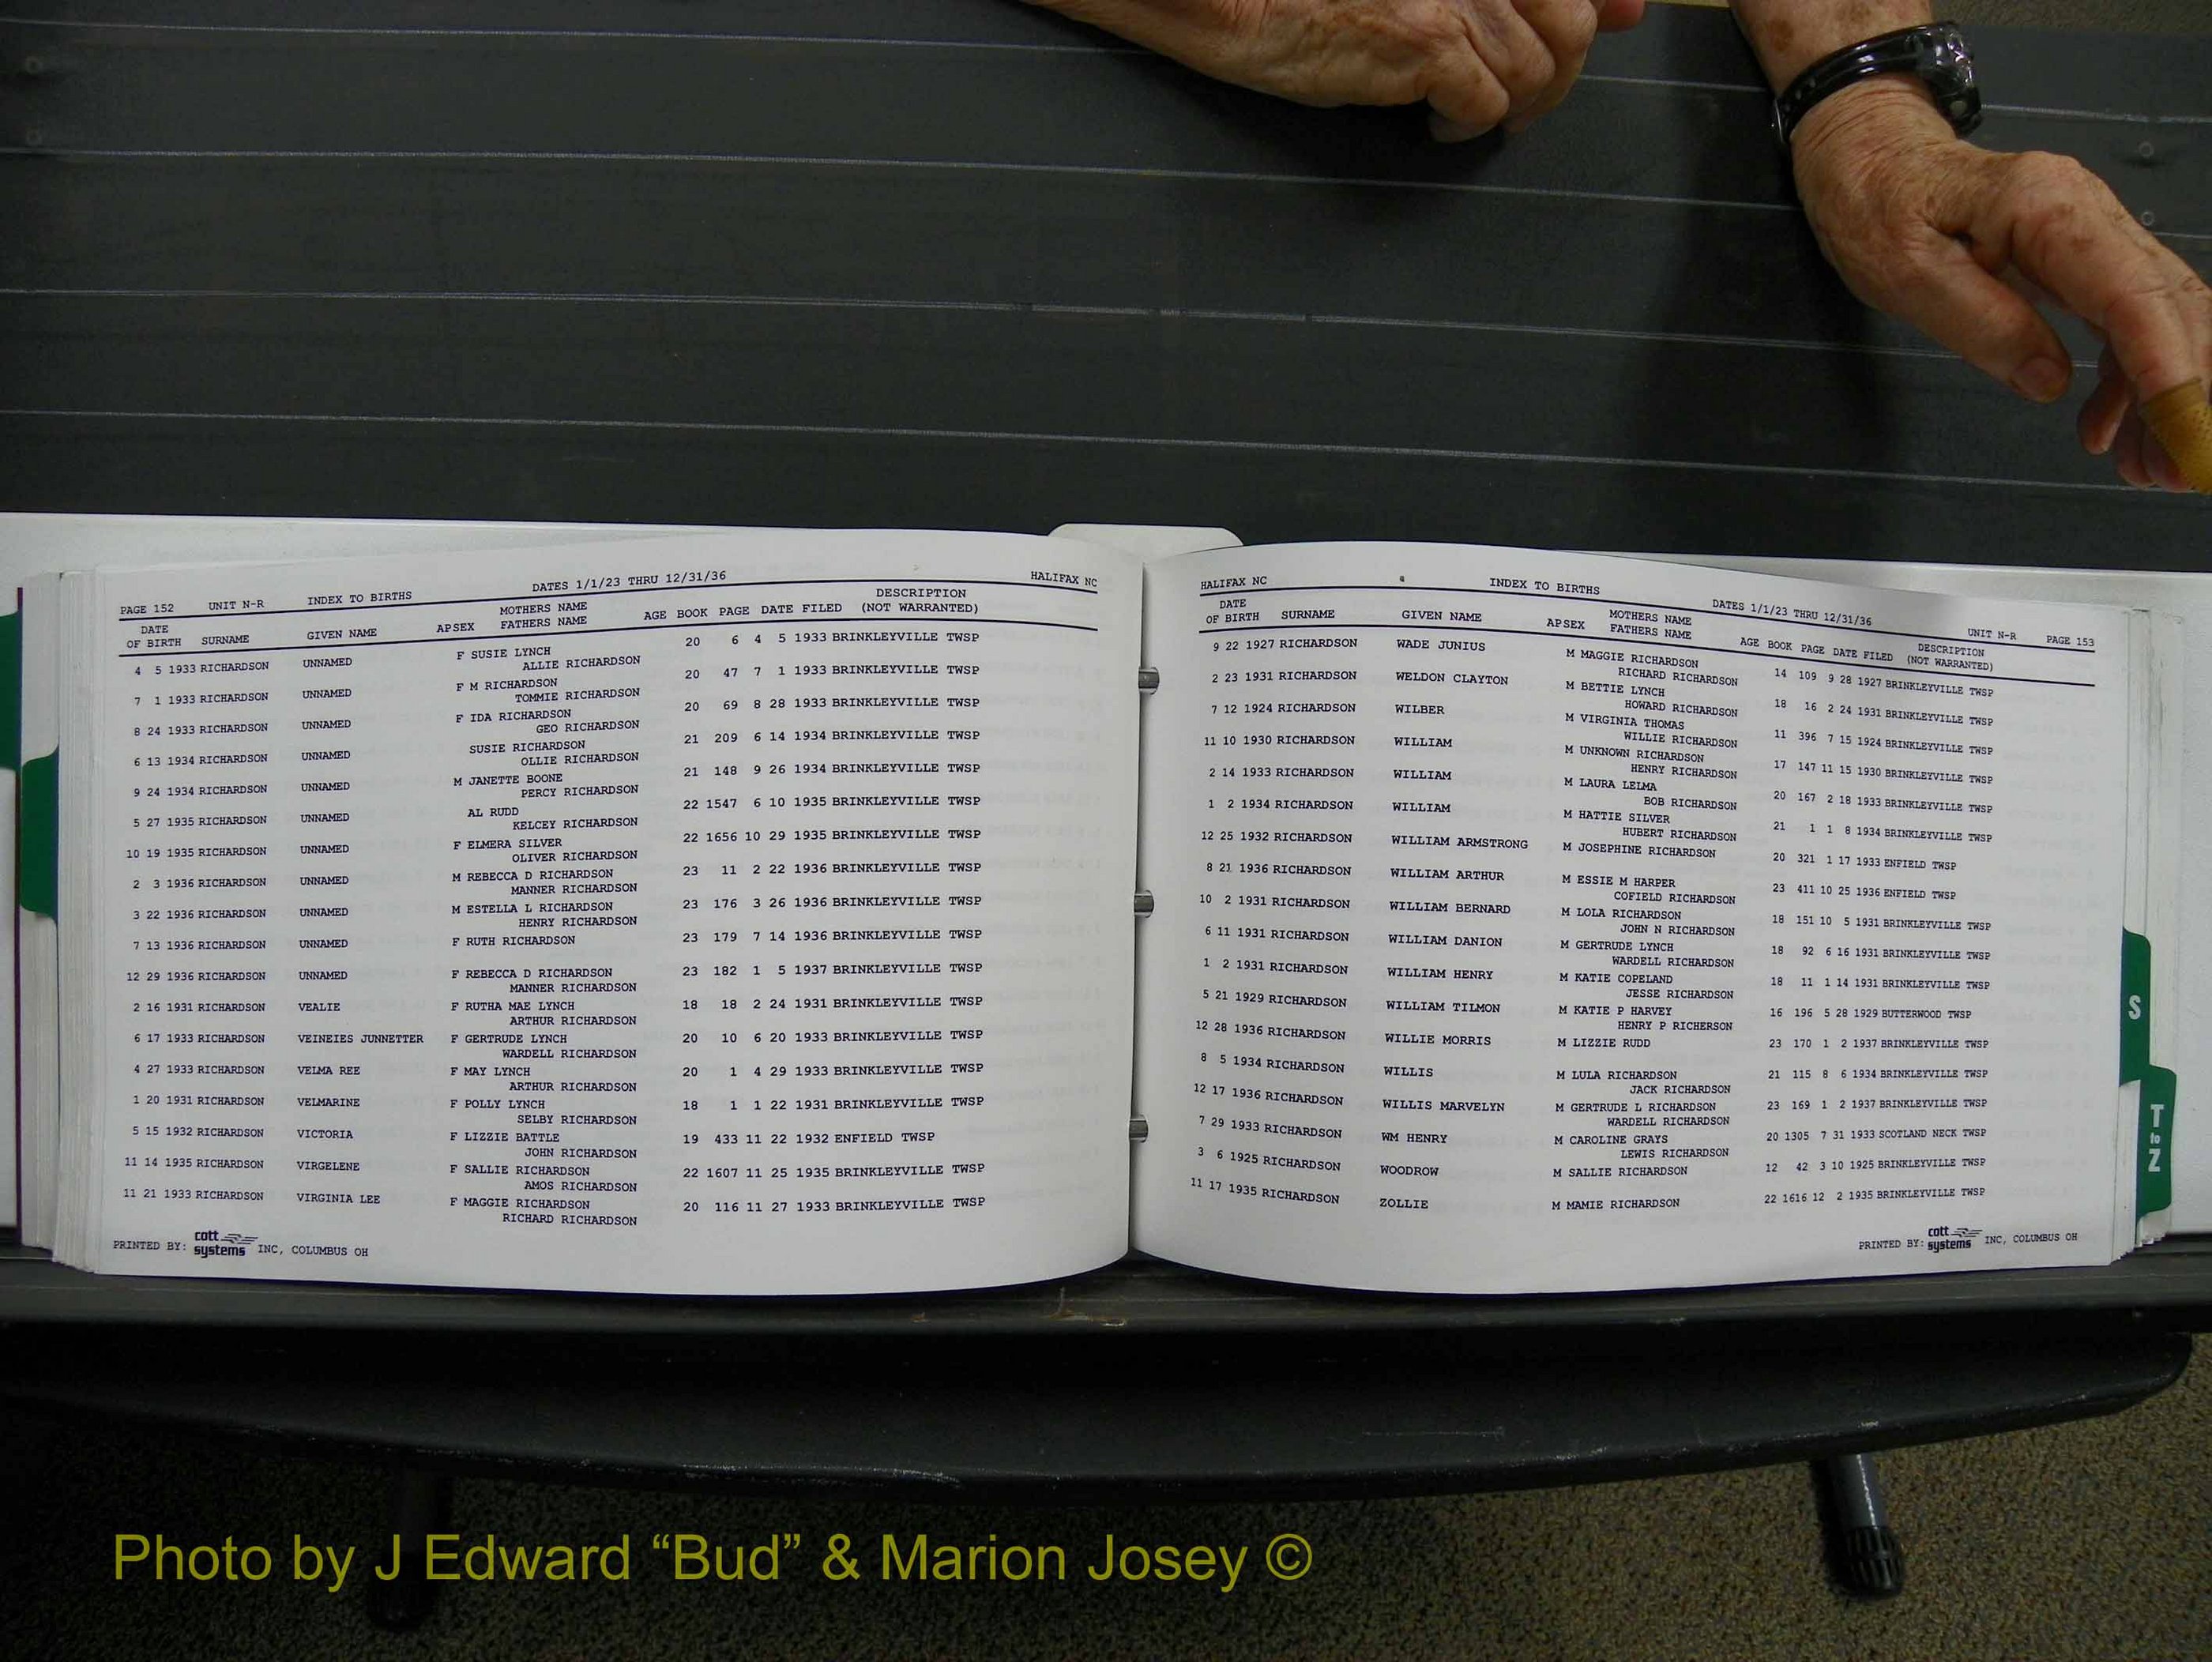 PAGE 152 UNIT N-R INDEX TO BIRTHS DATES 1/1/23 THRU 12/31/36 HALIFAX NC
DATE OF BIRTH SURNAME GIVEN NAME AP SEX MOTHERS NAME FATHERS NAME AGE BOOK PAGE DATE FILED DESCRIPTION (NOT WARRANTED)
4 5 1933 RICHARDSON UNNAMED F SUSIE LYNCH 20 6 4 5 1933 BRINKLEYVILLE TWSP
ALLIE RICHARDSON
7 1 1933 RICHARDSON UNNAMED F M RICHARDSON 20 47 7 1 1933 BRINKLEYVILLE TWSP
TOMMIE RICHARDSON
8 24 1933 RICHARDSON UNNAMED F IDA RICHARDSON 20 69 8 28 1933 BRINKLEYVILLE TWSP
GEO RICHARDSON
6 13 1934 RICHARDSON UNNAMED SUSIE RICHARDSON 21 209 6 14 1934 BRINKLEYVILLE TWSP
OLLIE RICHARDSON
9 24 1934 RICHARDSON UNNAMED M JANETTE BOONE 21 148 9 26 1934 BRINKLEYVILLE TWSP
PERCY RICHARDSON
5 27 1935 RICHARDSON UNNAMED AL RUDD 22 1547 6 10 1935 BRINKLEYVILLE TWSP
KELCEY RICHARDSON
10 19 1935 RICHARDSON UNNAMED F ELMERA SILVER 22 1656 10 29 1935 BRINKLEYVILLE TWSP
OLIVER RICHARDSON
2 3 1936 RICHARDSON UNNAMED M REBECCA D RICHARDSON 23 11 2 22 1936 BRINKLEYVILLE TWSP
MANNER RICHARDSON
3 22 1936 RICHARDSON UNNAMED M ESTELLA L RICHARDSON 23 176 3 26 1936 BRINKLEYVILLE TWSP
HENRY RICHARDSON
7 13 1936 RICHARDSON UNNAMED F RUTH RICHARDSON 23 179 7 14 1936 BRINKLEYVILLE TWSP
12 29 1936 RICHARDSON UNNAMED F REBECCA D RICHARDSON 23 182 1 5 1937 BRINKLEYVILLE TWSP
MANNER RICHARDSON
2 16 1931 RICHARDSON VEALIE F RUTHA MAE LYNCH 18 18 2 24 1931 BRINKLEYVILLE TWSP
ARTHUR RICHARDSON
6 17 1933 RICHARDSON VEINEIES JUNNETTER F GERTRUDE LYNCH 20 10 6 20 1933 BRINKLEYVILLE TWSP
WARDELL RICHARDSON
4 27 1933 RICHARDSON VELMA REE F MAY LYNCH 20 1 4 29 1933 BRINKLEYVILLE TWSP
ARTHUR RICHARDSON
1 20 1931 RICHARDSON VELMARINE F POLLY LYNCH 18 1 1 22 1931 BRINKLEYVILLE TWSP
SELBY RICHARDSON
5 15 1932 RICHARDSON VICTORIA F LIZZIE BATTLE 19 433 11 22 1932 ENFIELD TWSP
JOHN RICHARDSON
11 14 1935 RICHARDSON VIRGELENE F SALLIE RICHARDSON 22 1607 11 25 1935 BRINKLEYVILLE TWSP
AMOS RICHARDSON
11 21 1933 RICHARDSON VIRGINIA LEE F MAGGIE RICHARDSON 20 116 11 27 1933 BRINKLEYVILLE TWSP
RICHARD RICHARDSON
PRINTED BY: cott systems INC, COLUMBUS OH
HALIFAX NC INDEX TO BIRTHS DATES 1/1/23 THRU 12/31/36 UNIT N-R PAGE 153
DATE OF BIRTH SURNAME GIVEN NAME AP SEX MOTHERS NAME FATHERS NAME AGE BOOK PAGE DATE FILED DESCRIPTION (NOT WARRANTED)
9 22 1927 RICHARDSON WADE JUNIUS M MAGGIE RICHARDSON 14 109 9 28 1927 BRINKLEYVILLE TWSP
RICHARD RICHARDSON
2 23 1931 RICHARDSON WELDON CLAYTON M BETTIE LYNCH 18 16 2 24 1931 BRINKLEYVILLE TWSP
HOWARD RICHARDSON
7 12 1924 RICHARDSON WILBER M VIRGINIA THOMAS 11 396 7 15 1924 BRINKLEYVILLE TWSP
WILLIE RICHARDSON
11 10 1930 RICHARDSON WILLIAM M UNKNOWN RICHARDSON 17 147 11 15 1930 BRINKLEYVILLE TWSP
HENRY RICHARDSON
2 14 1933 RICHARDSON WILLIAM M LAURA LELMA 20 167 2 18 1933 BRINKLEYVILLE TWSP
BOB RICHARDSON
1 2 1934 RICHARDSON WILLIAM M HATTIE SILVER 21 1 1 8 1934 BRINKLEYVILLE TWSP
HUBERT RICHARDSON
12 25 1932 RICHARDSON WILLIAM ARMSTRONG M JOSEPHINE RICHARDSON 20 321 1 17 1933 ENFIELD TWSP
8 21 1936 RICHARDSON WILLIAM ARTHUR M ESSIE M HARPER 23 411 10 25 1936 ENFIELD TWSP
COFIELD RICHARDSON
10 2 1931 RICHARDSON WILLIAM BERNARD M LOLA RICHARDSON 18 151 10 5 1931 BRINKLEYVILLE TWSP
JOHN N RICHARDSON
6 11 1931 RICHARDSON WILLIAM DANION M GERTRUDE LYNCH 18 92 6 16 1931 BRINKLEYVILLE TWSP
WARDELL RICHARDSON
1 2 1931 RICHARDSON WILLIAM HENRY M KATIE COPELAND 18 11 1 14 1931 BRINKLEYVILLE TWSP
JESSE RICHARDSON
5 21 1929 RICHARDSON WILLIAM TILMON M KATIE P HARVEY 16 196 5 28 1929 BUTTERWOOD TWSP
HENRY P RICHERSON
12 28 1936 RICHARDSON WILLIE MORRIS M LIZZIE RUDD 23 170 1 2 1937 BRINKLEYVILLE TWSP
8 5 1934 RICHARDSON WILLIS M LULA RICHARDSON 21 115 8 6 1934 BRINKLEYVILLE TWSP
JACK RICHARDSON
12 17 1936 RICHARDSON WILLIS MARVELYN M GERTRUDE L RICHARDSON 23 169 1 2 1937 BRINKLEYVILLE TWSP
WARDELL RICHARDSON
7 29 1933 RICHARDSON WM HENRY M CAROLINE GRAYS 20 1305 7 31 1933 SCOTLAND NECK TWSP
LEWIS RICHARDSON
3 6 1925 RICHARDSON WOODROW M SALLIE RICHARDSON 12 42 3 10 1925 BRINKLEYVILLE TWSP
11 17 1935 RICHARDSON ZOLLIE M MAMIE RICHARDSON 22 1616 12 2 1935 BRINKLEYVILLE TWSP
PRINTED BY: cott systems INC, COLUMBUS OH
S
T
to
Z
Photo by J Edward “Bud” & Marion Josey ©